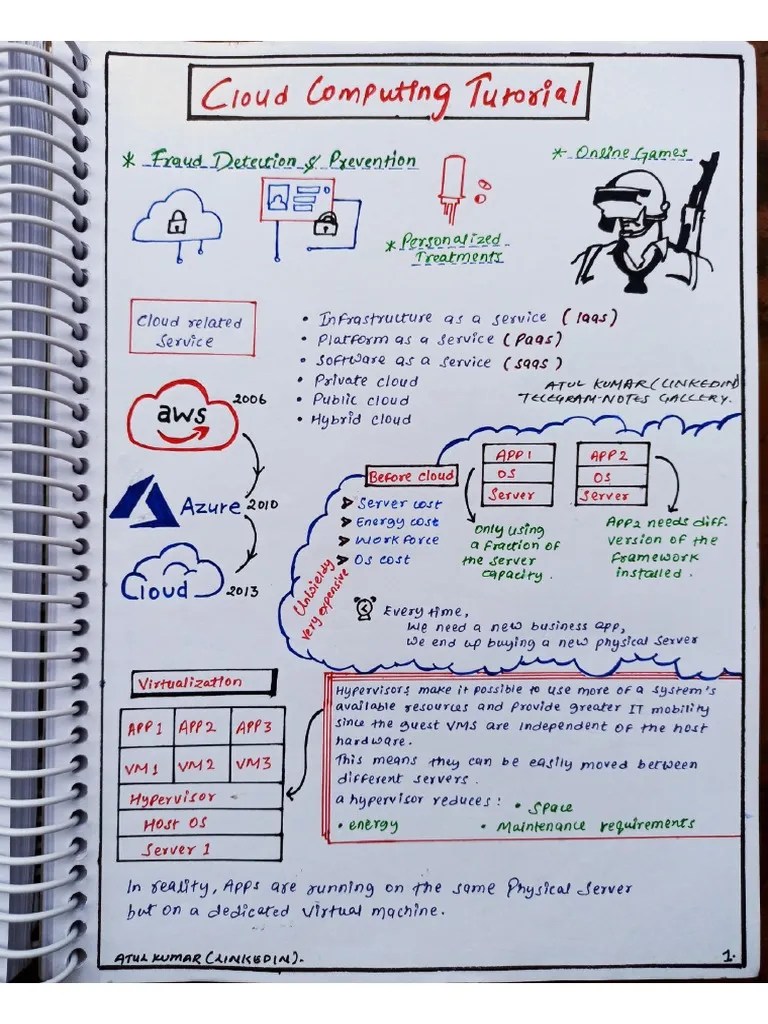 Cloud Computing Tutorial
* Fraud Detection & Prevention
* Online Games
* Personalized
Treatments
Cloud related
Service
• Infrastructure as a service (Iaas)
• Platform as a service (Paas)
• Software as a service (saas)
• Private cloud
• Public cloud
• Hybrid cloud
ATUL KUMAR (LINKEDIN)
TELEGRAM-NOTES GALLERY.
aws 2006
Azure 2010
Cloud 2013
Before cloud
➤ Server cost
➤ Energy cost
➤ Work force
➤ OS cost
Unwieldy
very expensive
APP 1
OS
Server
APP 2
OS
Server
only using
a fraction of
the server
capacity.
App2 needs diff.
version of the
framework
installed.
Every time,
we need a new business app,
we end up buying a new physical server
Virtualization
APP 1 APP 2 APP 3
VM 1 VM 2 VM 3
Hypervisor
Host OS
Server 1
Hypervisors make it possible to use more of a system's
available resources and provide greater IT mobility
since the guest VMs are independent of the host
hardware.
This means they can be easily moved between
different servers.
a hypervisor reduces: • Space
• energy • Maintenance requirements
In reality, Apps are running on the same Physical Server
but on a dedicated virtual machine.
ATUL KUMAR (LINKEDIN).
1.